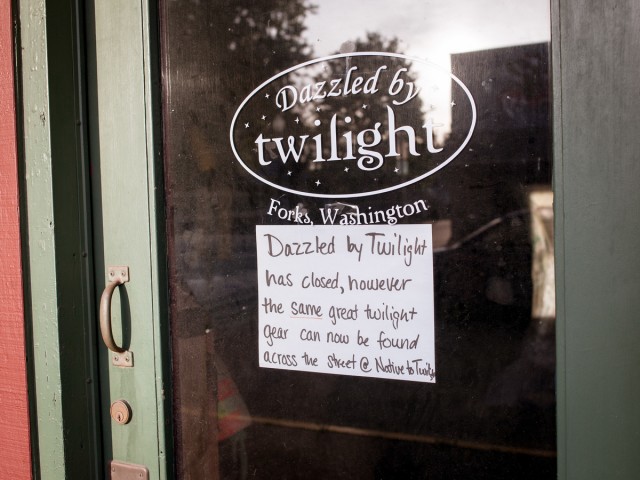 Dazzled by
twilight
Forks, Washington
Dazzled by Twilight
has closed, however
the same great twilight
gear can now be found
across the street @ Native to